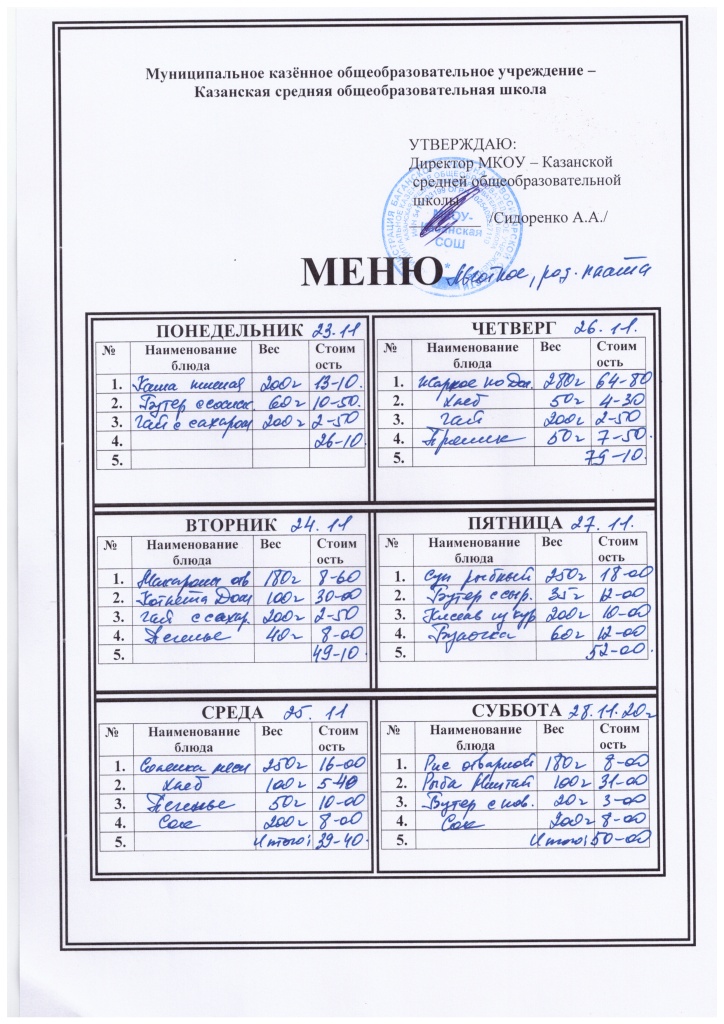 Муниципальное казённое общеобразовательное учреждение –
Казанская средняя общеобразовательная школа
УТВЕРЖДАЮ:
Директор МКОУ – Казанской
средней общеобразовательной
школы
/Сидоренко А.А./
МКОУ-
Казанская
СОШ
МЕНЮ Льготное, род. плата
ПОНЕДЕЛЬНИК 23.11
№ Наименование блюда Вес Стоимость
1. Каша 200г 13-10.
2. Бутер с сосиск. 60г 10-50.
3. Чай с сахаром 200г 2-50
4. 26-10.
5.
ВТОРНИК 24.11
№ Наименование блюда Вес Стоимость
1. Макароны отв 180г 8-60
2. Котлета Дом 100г 30-00
3. Чай с сахар. 200г 2-50
4. Печенье 40г 8-00
5. 49-10.
СРЕДА 25.11
№ Наименование блюда Вес Стоимость
1. Солянка 250г 16-00
2. Хлеб 100г 5-40
3. Печенье 50г 10-00
4. Сок 200г 8-00
5. Итого: 39-40.
ЧЕТВЕРГ 26.11.
№ Наименование блюда Вес Стоимость
1. Жаркое по Дом. 280г 64-80
2. Хлеб 50г 4-30
3. Чай 200г 2-50
4. Пряник 50г 7-50.
5. 79-10.
ПЯТНИЦА 27.11.
№ Наименование блюда Вес Стоимость
1. Суп рыбный 250г 18-00
2. Бутер с сыр. 35г 12-00
3. Кисель из кур 200г 10-00
4. Булочка 60г 12-00
5. 52-00.
СУББОТА 28.11.20г
№ Наименование блюда Вес Стоимость
1. Рис отварной 180г 8-00
2. Рыба Минтай 100г 31-00
3. Бутер с пов. 20г 3-00
4. Сок 200г 8-00
5. Итого: 50-00